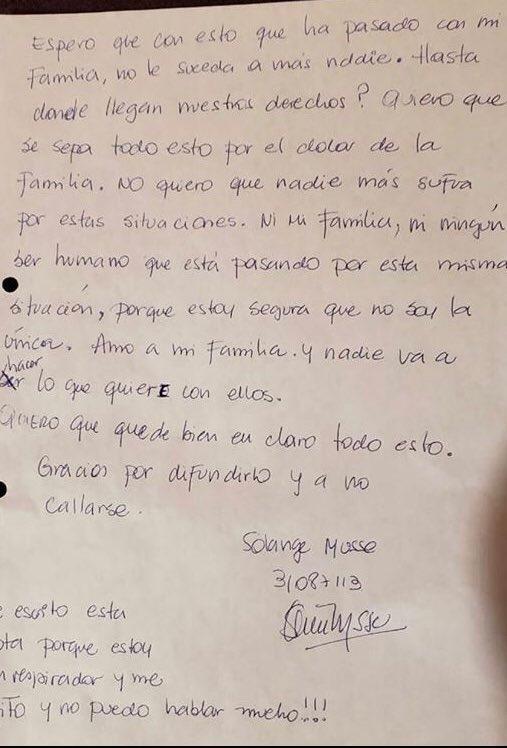 Espero que con esto que ha pasado con mi
familia, no le suceda a más naddie. Hasta
donde llegan nuestros derechos? Quiero que
se sepa todo esto por el dolor de la
familia. No quiero que nadie más sufra
por estas situaciones. Ni mi familia, ni ningún
ser humano que está pasando por esta misma
situación, porque estoy segura que no soy la
única. Amo a mi familia. y nadie va a
hacer
lo que quierE con ellos.
QUIERO que quede bien en claro todo esto.
Gracias por difundirlo y a no
callarse.
Solange Musse
31087113
e escrito esta
ota porque estoy
respirador y me
ito y no puedo hablar mucho!!!